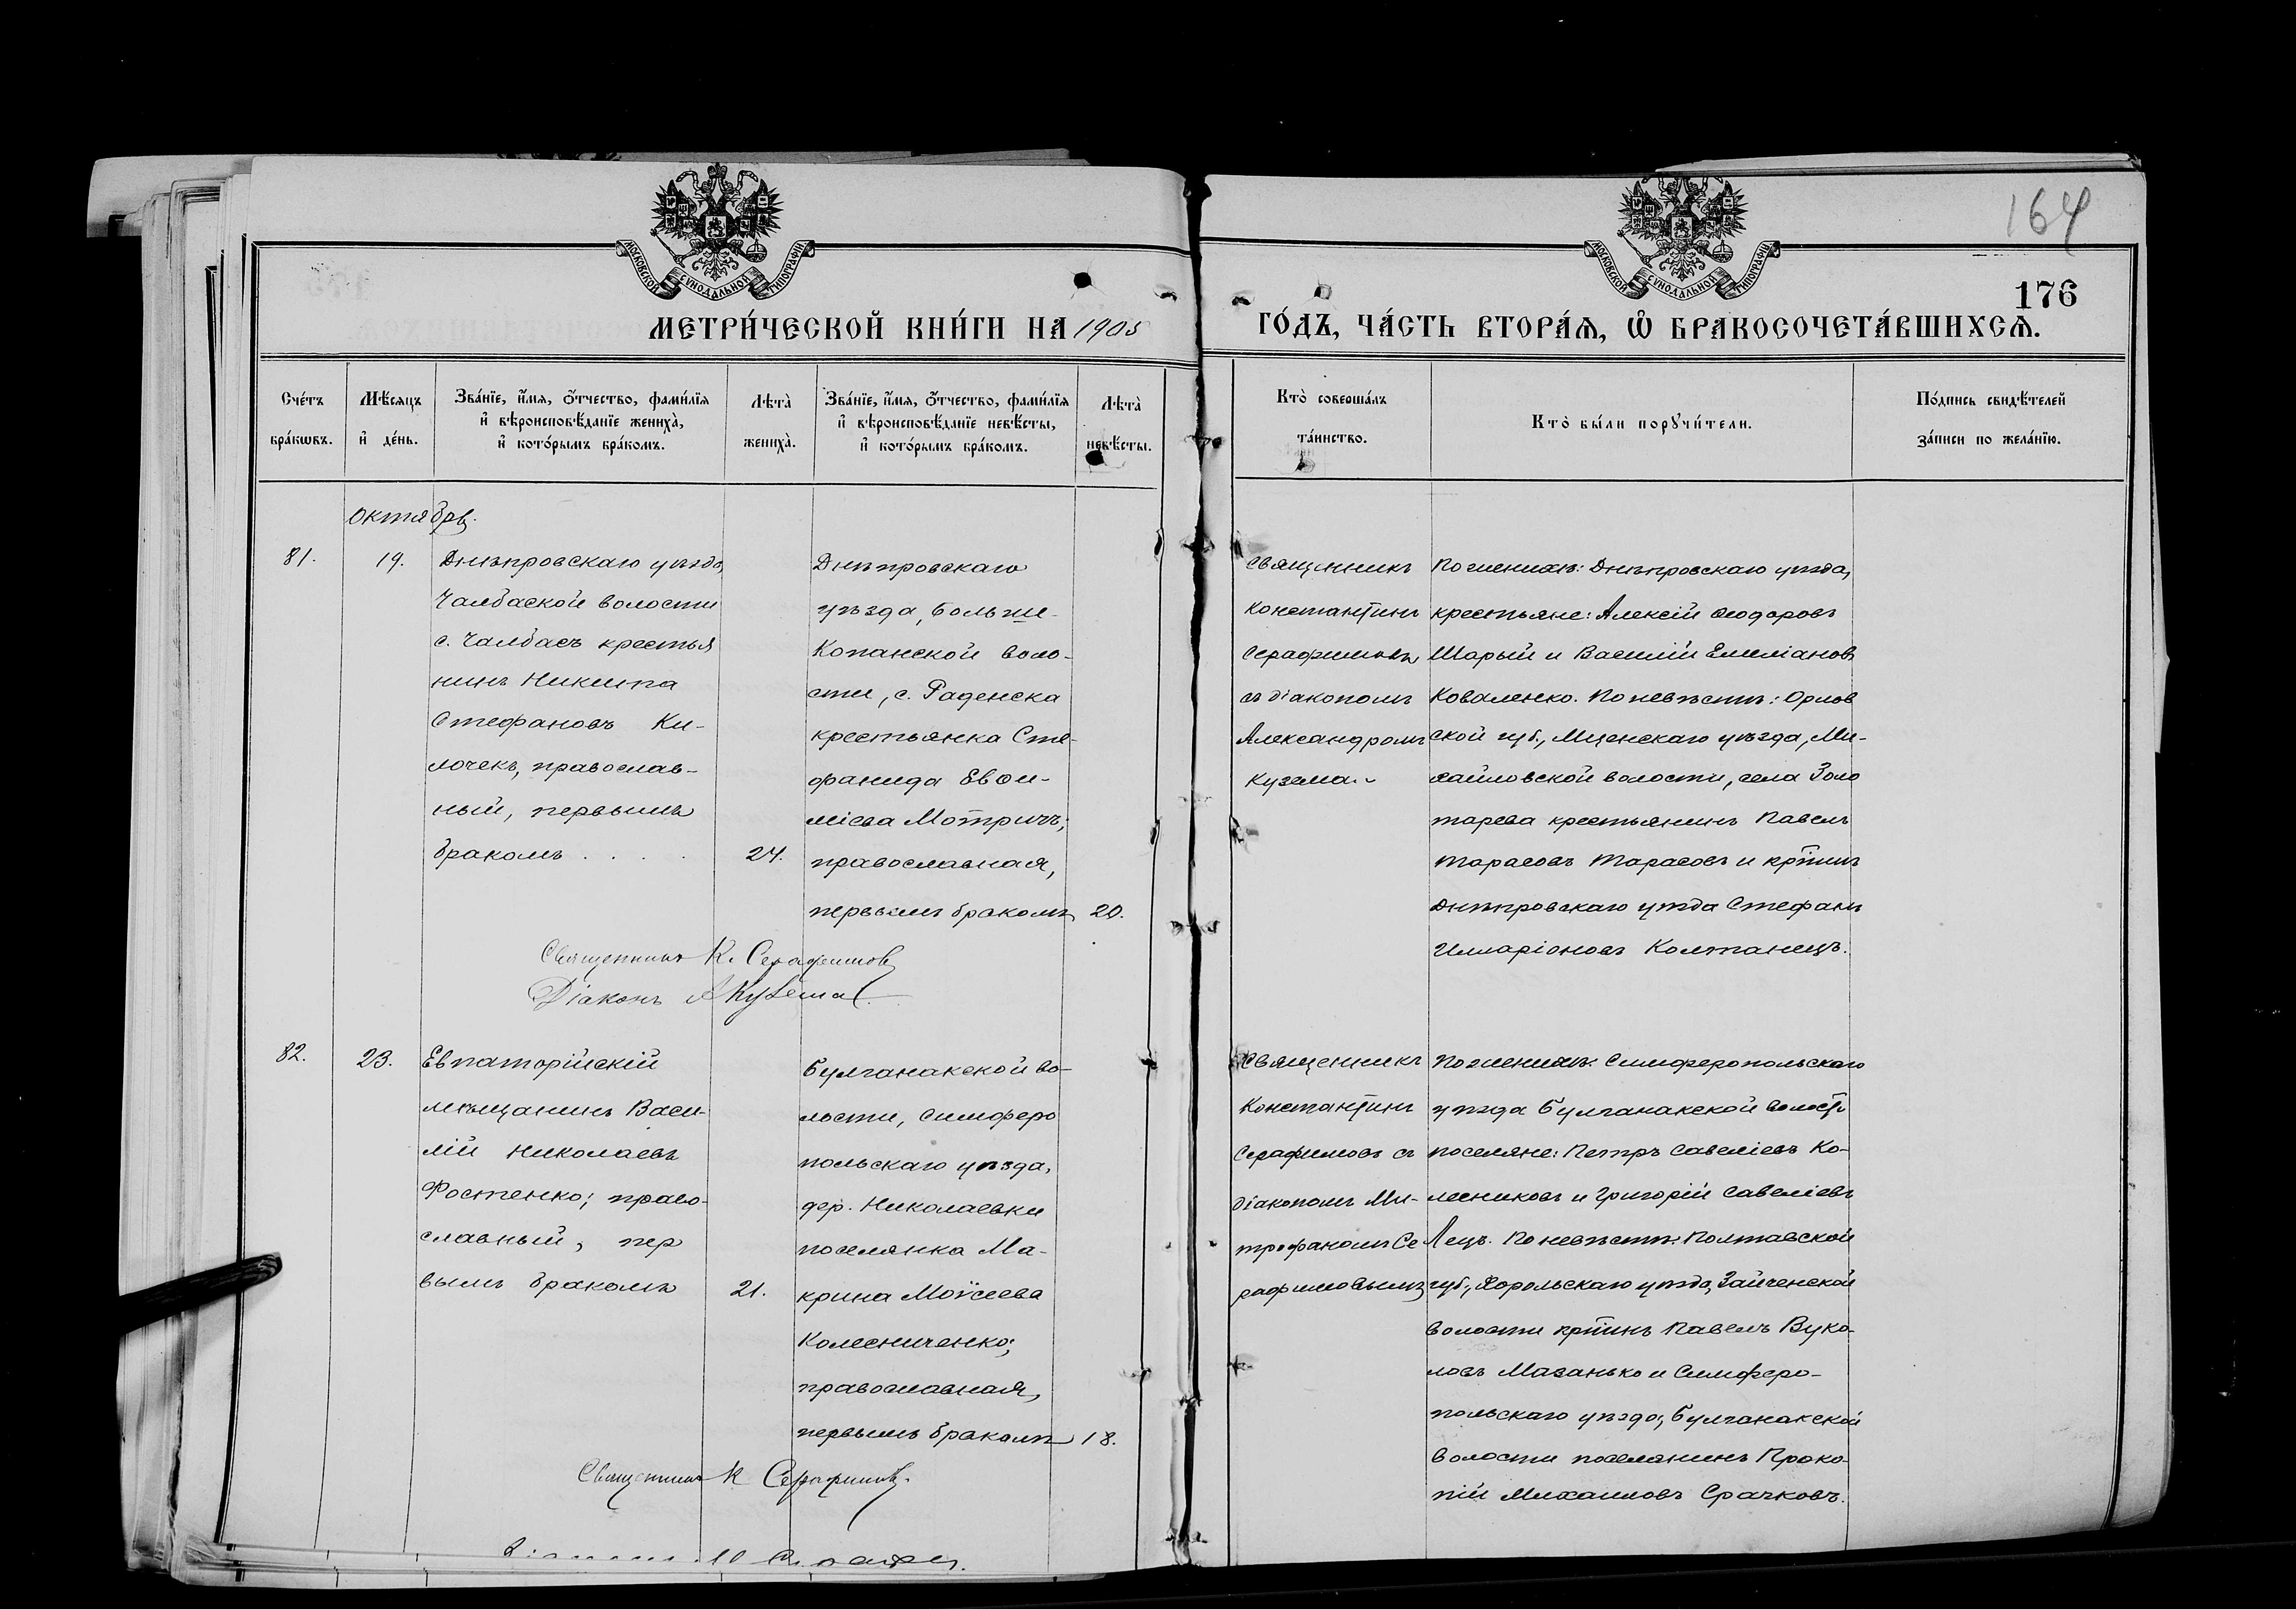 164
176
МОСКОВСКОЙ СѴНОДАЛЬНОЙ ТИПОГРАФІИ
МОСКОВСКОЙ СѴНОДАЛЬНОЙ ТИПОГРАФІИ
МЕТРИ́ЧЕСКОЙ КНИ́ГИ НА 1905
ГО́ДЪ, ЧА́СТЬ ВТОРА́Ѧ, Ѽ БРАКОСОЧЕТА́ВШИХСѦ.
Сче́тъ
бра́кѡвъ.
Мѣ́сяцъ
и҆ де́нь.
Зва́нїе, и҆́мя, ѻ҆́тчество, фами́лїя
и҆ вѣроисповѣ́данїе жениха̀,
и҆ кото́рымъ бра́комъ.
Лѣта̀
жениха̀.
Зва́нїе, и҆́мя, ѻ҆́тчество, фами́лїя
и҆ вѣроисповѣ́данїе невѣ́сты,
и҆ кото́рымъ бра́комъ.
Лѣта̀
невѣ́сты.
Кто̀ соверша́лъ
та́инство.
Кто̀ бы́ли порꙋчи́тели.
По́дпись свидѣ́телей
за́писи по жела́нїю.
Октябрь.
81.
19.
Днѣпровскаго уѣзда,
Чалбаской волости
с. Чалбасъ крестья
нинъ Никита
Стефановъ Ки-
лочекъ, православ-
ный, первымъ
бракомъ . . . .
24.
Днѣпровскаго
уѣзда, Больше-
Копанской воло-
сти, с. Раденска
крестьянка Сте-
фанида Евѳи-
міева Мотричъ;
православная,
первымъ бракомъ
20.
Священникъ
Константинъ
Серафимовъ
съ діакономъ
Александромъ
Кузема.
По женихѣ: Днѣпровскаго уѣзда,
крестьяне: Алексій Ѳеодоровъ
Шарый и Василій Емиліановъ
Коваленко. По невѣстѣ: Орлов
ской губ., Мценскаго уѣзда, Ми-
хайловской волости, села Золо
тарева крестьянинъ Павелъ
Тарасовъ Тарасовъ и кр҃тинъ
Днѣпровскаго уѣзда Стефанъ
Илларіоновъ Колтанецъ.
Священникъ К. Серафимовъ
Діаконъ А Кузема
82.
23.
Евпаторійскій
мѣщанинъ Васи-
лій Николаевъ
Фостенко; право-
славный, пер
вымъ бракомъ
21.
Булганакской во-
лости, Симферо
польскаго уѣзда,
дер. Николаевки
поселянка Ма-
крина Моѵсеева
Колесниченко;
православная,
первымъ бракомъ
18.
Священникъ
Константинъ
Серафимовъ съ
діакономъ Ми-
трофаномъ Се
рафимовымъ
По женихѣ: Симферопольскаго
уѣзда Булганакской волости
поселяне: Петръ Савеліевъ Ко-
лесниковъ и Григорій Савеліевъ
Лецъ. По невѣстѣ: Полтавской
губ., Хорольскаго уѣзда, Зайченской
волости кр҃тинъ Павелъ Вуко-
ловъ Мазанько и Симферо-
польскаго уѣзда, Булганакской
волости поселянинъ Проко-
пій Михаиловъ Срачковъ.
Священникъ К Серафимовъ